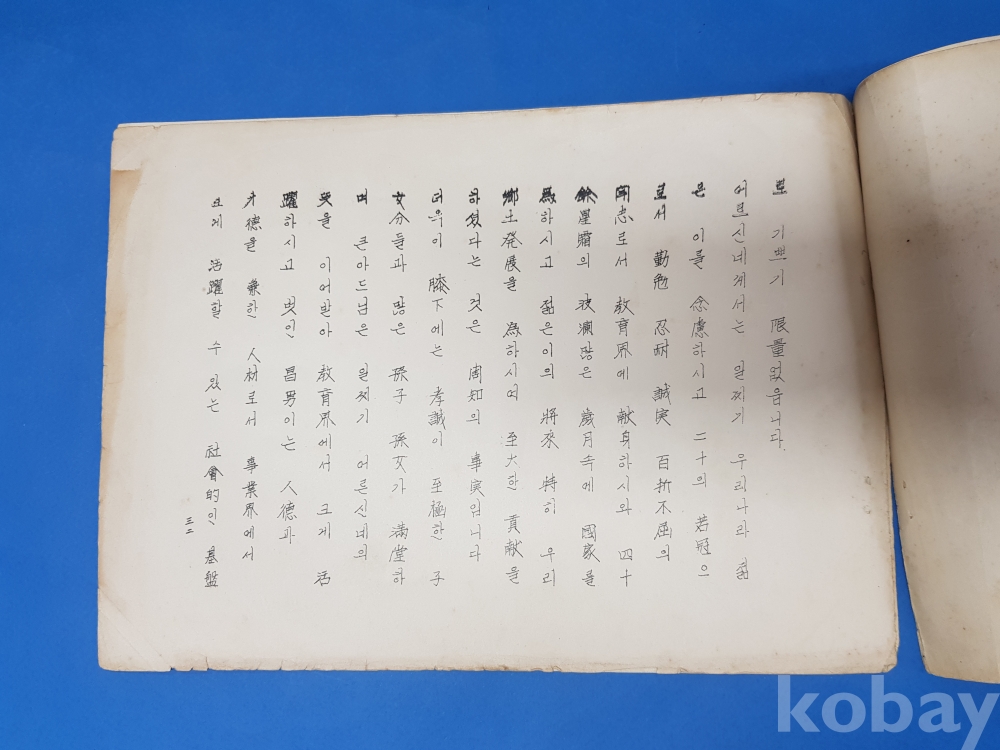 로 기쁘기 限量없읍니다.
어르신네께서는 일찌기 우리나라 젊
은 이를 念慮하시고 二十의 若冠으
로서 勤勉 忍耐 誠実 百折不屈의
闘志로서 教育界에 献身하시와 四十
餘星霜의 波瀾많은 歲月속에 國家를
爲하시고 젊은이의 將來 特히 우리
鄕土発展을 爲하시여 至大한 貢献을
하셨다는 것은 周知의 事実입니다
더욱이 膝下에는 孝誠이 至極한 子
女分들과 많은 孫子 孫女가 滿堂하
며 큰아드님은 일찌기 어른신네의
뜻을 이어받아 教育界에서 크게 活
躍하시고 벗인 昌男이는 人德과
才德을 兼한 人材로서 事業界에서
크게 活躍할 수 있는 社會的인 基盤
三二
kobay